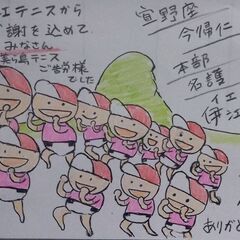 江テニスから
謝を込めて
みなさん
美ら島テニス
ご苦労様
でした
宜野座
今帰仁
本部
名護
イエ
伊江
ありが